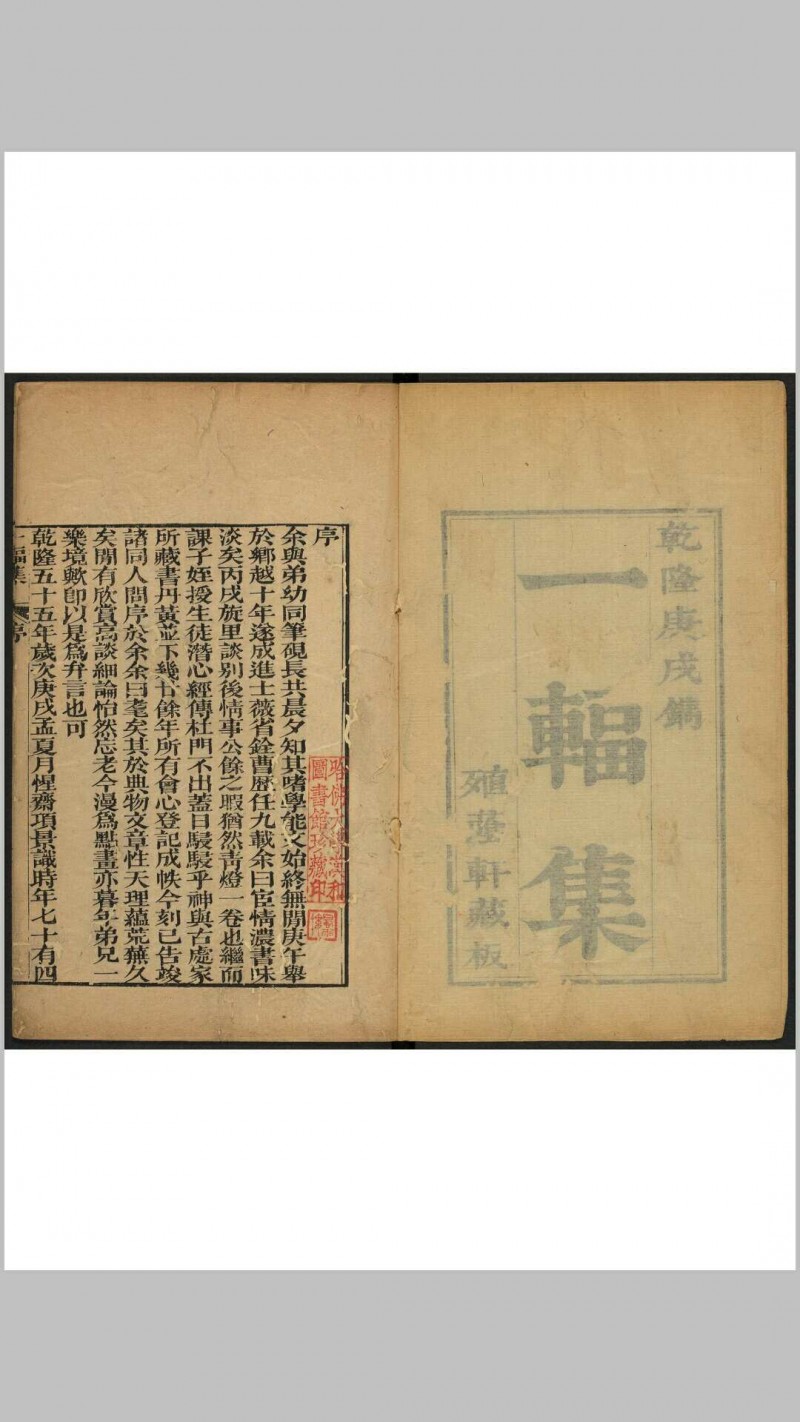 乾隆庚戌鐫
一輻集
殖蘁軒藏板
序
余與弟幼同筆硯長共晨夕知其嗜學能文始終無間庚午舉
於鄉越十年遂成進士薇省銓曹歷任九載余曰宦情濃書味
淡矣丙戌旋里談別後情事公餘之暇猶然靑燈一卷也繼而
課子姪授生徒潛心經傳杜門不出蓋日駸駸乎神與古處家
所藏書丹黃並下幾廿餘年所有會心登記成帙今刻已告竣
諸同人問序於余余曰耄矣其於典物文章性天理蘊荒蕪久
矣閒有欣賞高談細論怡然忘老今漫爲點畫亦暮年弟兄一
樂境歟卽以是爲弁言也可
乾隆五十五年歲次庚戌孟夏月惺齋項景識時年七十有四
一輻集 序
哈佛大學漢和
圖書館珍藏印